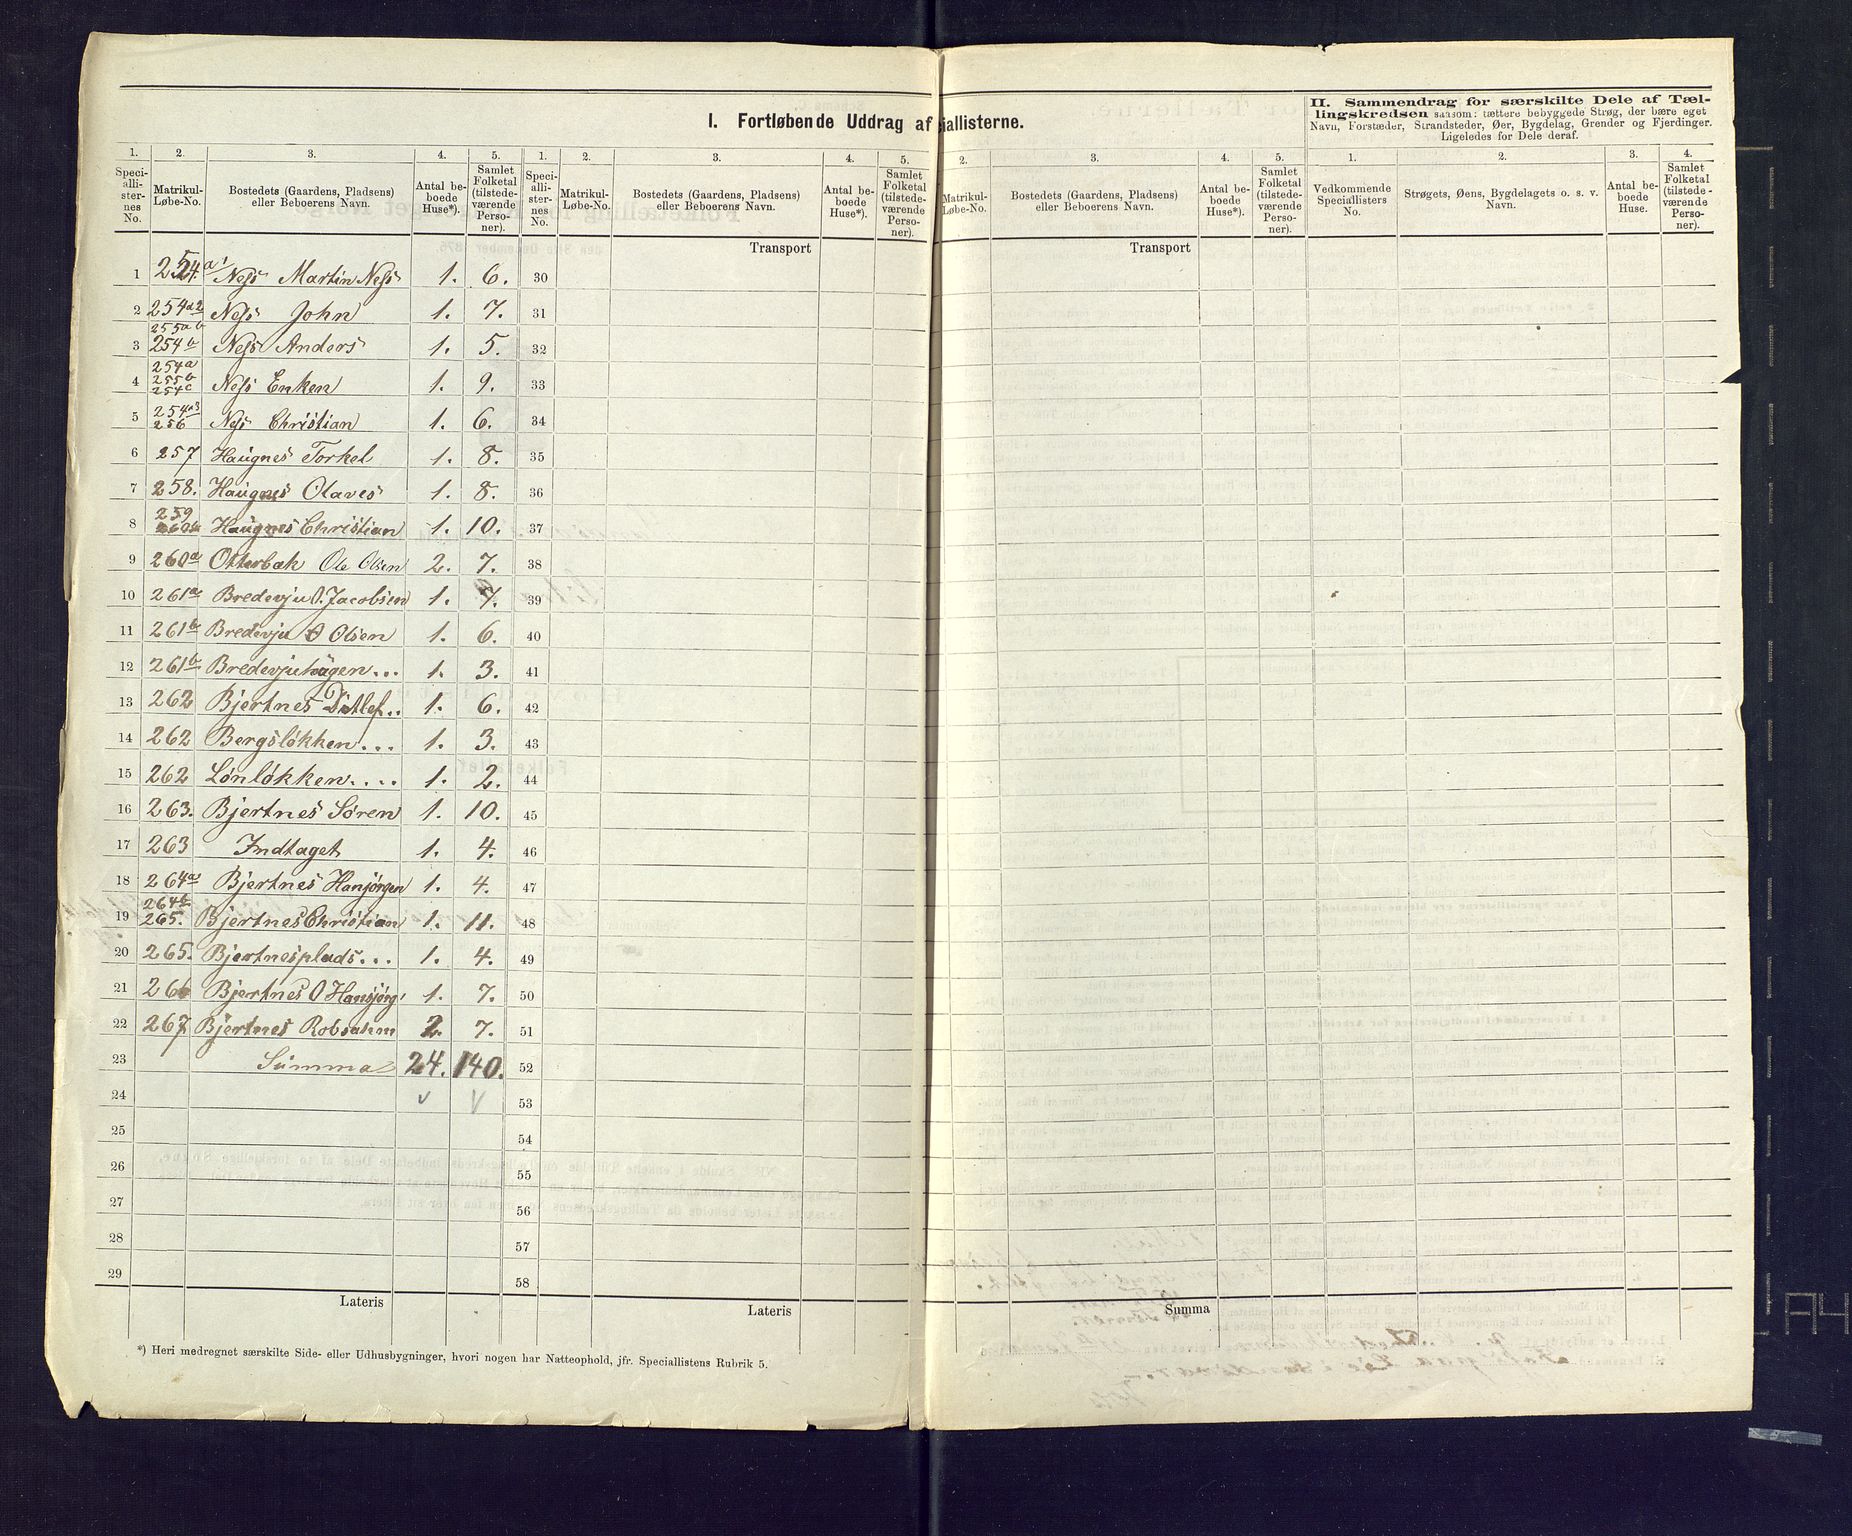 I. Fortløbende Uddrag af Speciallisterne.
II. Sammendrag for særskilte Dele af Tæl-
lingskredsen saasom: tættere bebyggede Strøg, der bære eget
Navn, Forstæder, Strandsteder, Øer, Bygdelag, Grender og Fjerdinger.
Ligeledes for Dele deraf.
1. 2. 3. 4. 5. 1. 2. 3. 4. 5. 2. 3. 4. 5. 1. 2. 3. 4.
Speci-alli-ster-nes No. Matrikul-Løbe-No. Bostedets (Gaardens, Pladsens) eller Beboerens Navn. Antal be-boede Huse*). Samlet Folketal (tilstede-værende Perso-ner).
Speci-alli-ster-nes No. Matrikul-Løbe-No. Bostedets (Gaardens, Pladsens) eller Beboerens Navn. Antal be-boede Huse*). Samlet Folketal (tilstede-værende Perso-ner).
Matrikul-Løbe-No. Bostedets (Gaardens, Pladsens) eller Beboerens Navn. Antal be-boede Huse*). Samlet Folketal (tilstede-værende Perso-ner).
Vedkommende Speciallisters No. Strøgets, Øens, Bygdelagets o. s. v. Navn. Antal be-boede Huse. Samlet Folketal (tilstede-værende Perso-ner).
Transport Transport
1 254 a1 Ness Martin Ness 1. 6. 30
2 254a2 Ness John 1. 7. 31
3 255ab 254b Ness Anders 1. 5. 32
4 254a 255b 254c Ness Enken 1. 9. 33
5 254a3 256 Ness Christian 1. 6. 34
6 257 Haugnes Torkel 1. 8. 35
7 258. Haugnes Olaves 1. 8. 36
8 259 Haugnes Christian 1. 10. 37
9 260a Otterbæk Ole Olsen 2. 7. 38
10 261a Bredevju O. Jacobsen 1. 7. 39
11 261b Bredevju O Olsen 1. 6. 40
12 261b Bredevjuhagen... 1. 3. 41
13 262 Bjertnes Ditlef.. 1. 6. 42
14 262 Bergsløkken... 1. 3. 43
15 262 Lønløkken.... 1. 2. 44
16 263. Bjertnes Søren 1. 10. 45
17 263 Indtaget 1. 4. 46
18 264a Bjertnes Hansjørgen 1. 4. 47
19 264b 265. Bjertnes Christian 1. 11. 48
20 265. Bjertnesplads... 1. 4. 49
21 266 Bjertnes O Hansjørg 1. 7. 50
22 267 Bjertnes Robsahm 2. 7. 51
23 Summa 24. 140. 52
24 53
25 54
26 55
27 56
28 57
29 58
Lateris Lateris Summa
*) Heri medregnet særskilte Side- eller Udhusbygninger, hvori nogen har Natteophold, jfr. Speciallistens Rubrik 5.